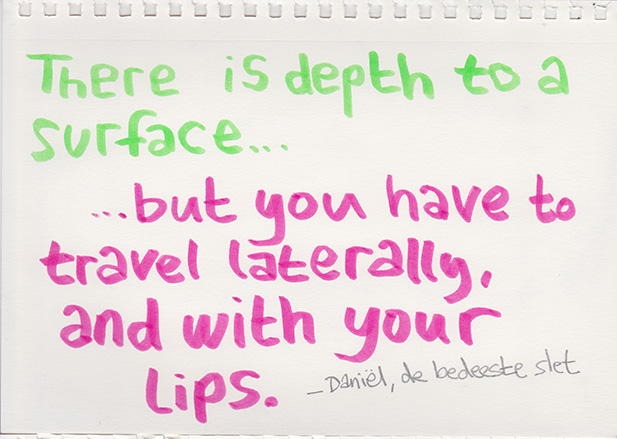 There is depth to a
surface...
...but you have to
travel laterally,
and with your
lips.
– Daniël, de bedeeste slet